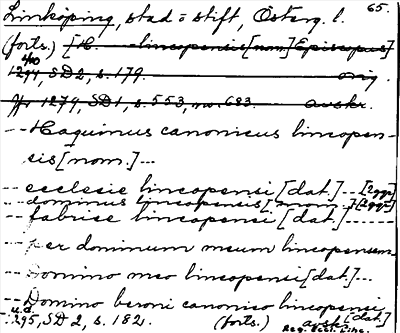 Linköping, stad o stift, Österg. l. 65.
(forts.) [H. lincopensis [nom] Episcopus]
4/10
1294, SD 2, s. 179. orig.
1279, SD 1, s. 553, no. 683. avskr.
-- Haquinus canonicus lincopen-
sis [nom.]...
-- ecclesie lincopensi [dat.] -- [2ggr]
-- dominus lincopensis [nom.] [2ggr]
-- fabrice lincopensi [dat.] -----
-- per dominum meum lincopensem
-- Domino meo lincopensi [dat.]...
-- Domino beroni canonico lincopensi [dat.]
u.d.
1295, SD 2, s. 182. (forts.) avskr.